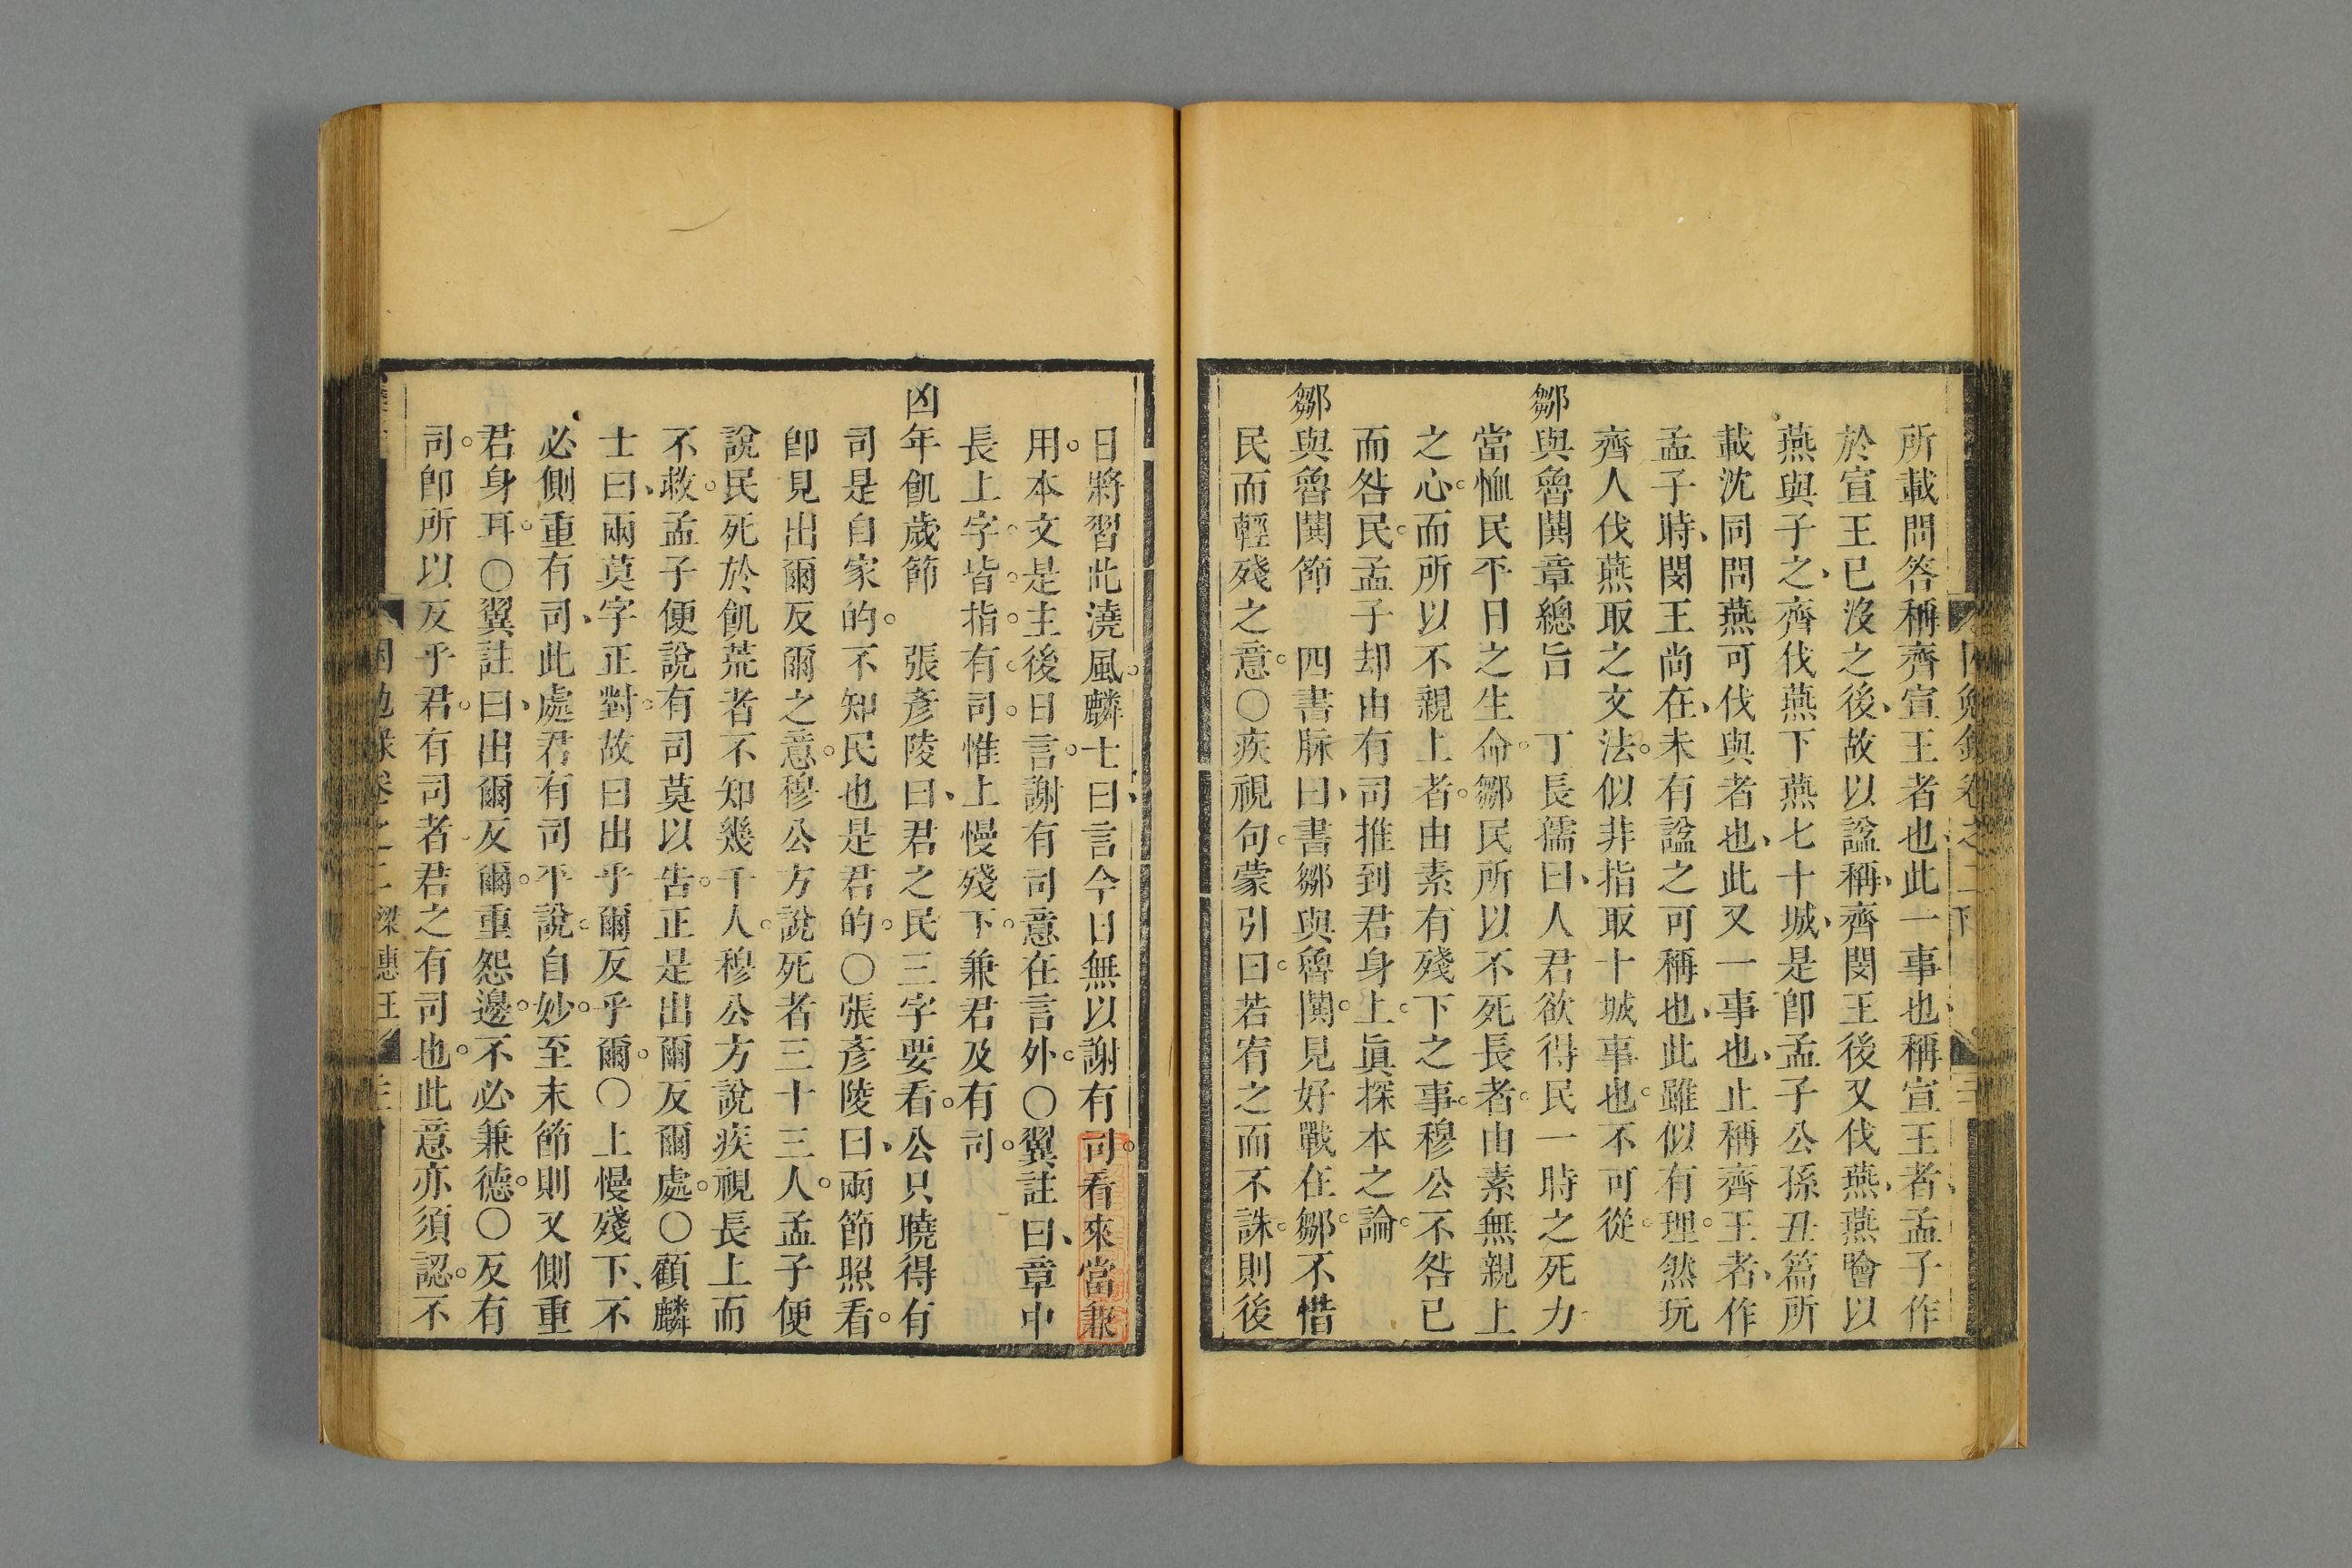 所載問答稱齊宣王者也、此一事也、稱宣王者、孟子作
於宣王已沒之後、故以諡稱、齊閔王後又伐燕、燕噲以
燕與子之、齊伐燕下燕七十城、是卽孟子公孫丑篇所
載沈同問燕可伐與者也、此又一事也、止稱齊王者、作
孟子時、閔王尚在、未有諡之可稱也、此雖似有理。然玩
齊人伐燕取之文法。似非指取十城事也。不可從。
鄒與魯鬨章總旨　丁長孺曰、人君欲得民一時之死力
當恤民平日之生命。鄒民所以不死長者。由素無親上
之心。而所以不親上者。由素有殘下之事。穆公不咎已
而咎民。孟子却由有司推到君身上。眞探本之論。
鄒與魯鬨節　四書脉曰、書鄒與魯鬨。見好戰在鄒。不惜
民而輕殘之意。〇疾視句。蒙引曰。若宥之而不誅。則後
日將習此澆風。麟士曰、言今日無以謝有司。看來當兼
用。本文是主後日言。謝有司意在言外。〇翼註曰、章中
長上字。皆。指。有。司。惟上慢殘下。兼君及有司。
凶年飢歲節　張彥陵曰、君之民三字要看。公只曉得有
司是自家的。不知民也是君的。〇張彥陵曰、兩節照看。
卽見出爾反爾之意。穆公方說死者三十三人。孟子便
說民死於飢荒者不知幾千人。穆公方說疾視長上而
不救。孟子便說有司莫以告。正是出爾反爾處。〇顧麟
士曰、兩莫字正對。故曰出乎爾反乎爾。〇上慢殘下、不
必側重有司、此處君有司平說。自妙。至末節則又側重
君身耳。〇翼註曰、出爾反爾。重怨邊。不必兼德。〇反有
司。卽所以反乎君。有司者君之有司也。此意亦須認。不
困勉錄卷之二 梁惠王